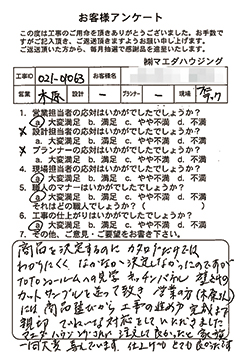 お客様アンケート
この度は工事のご用命を頂きありがとうございました。お手数で
すがご記入頂き、ご返送頂けますようお願い申し上げます。
ご返送頂いた方から、毎月抽選で感謝品を進呈いたします。
㈱マエダハウジング
工事ID 021-01063 お客様名
営業 木原 設計 — プランナー — 現場
1. 営業担当者の応対はいかがでしたでしょうか?
a.大変満足 b.満足 c.やや不満 d.不満
× 設計担当者の応対はいかがでしたでしょうか?
a.大変満足 b.満足 c.やや不満 d.不満
× プランナーの応対はいかがでしたでしょうか?
a.大変満足 b.満足 c.やや不満 d.不満
4. 現場担当者の応対はいかがでしたでしょうか?
a.大変満足 b.満足 c.やや不満 d.不満
5. 職人のマナーはいかがでしたでしょうか?
a.大変満足 b.満足 c.やや不満 d.不満
それはどの職人でしょうか?( )
6. 工事の仕上がりはいかがでしたでしょうか?
a.大変満足 b.満足 c.やや不満 d.不満
7. その他、ご意見・ご要望をお書き下さい。
商品を決定するのに カタログだけでは
わかりにくく なかなか 決定しなかったのですが
TOTOショールームへの見学 キッチンパネル
カットサンプルを送って頂き 営業の方(木原さん)
には 商品選びから 工事の進め方 完成まで
親切 ていねいな対応をしていただきました